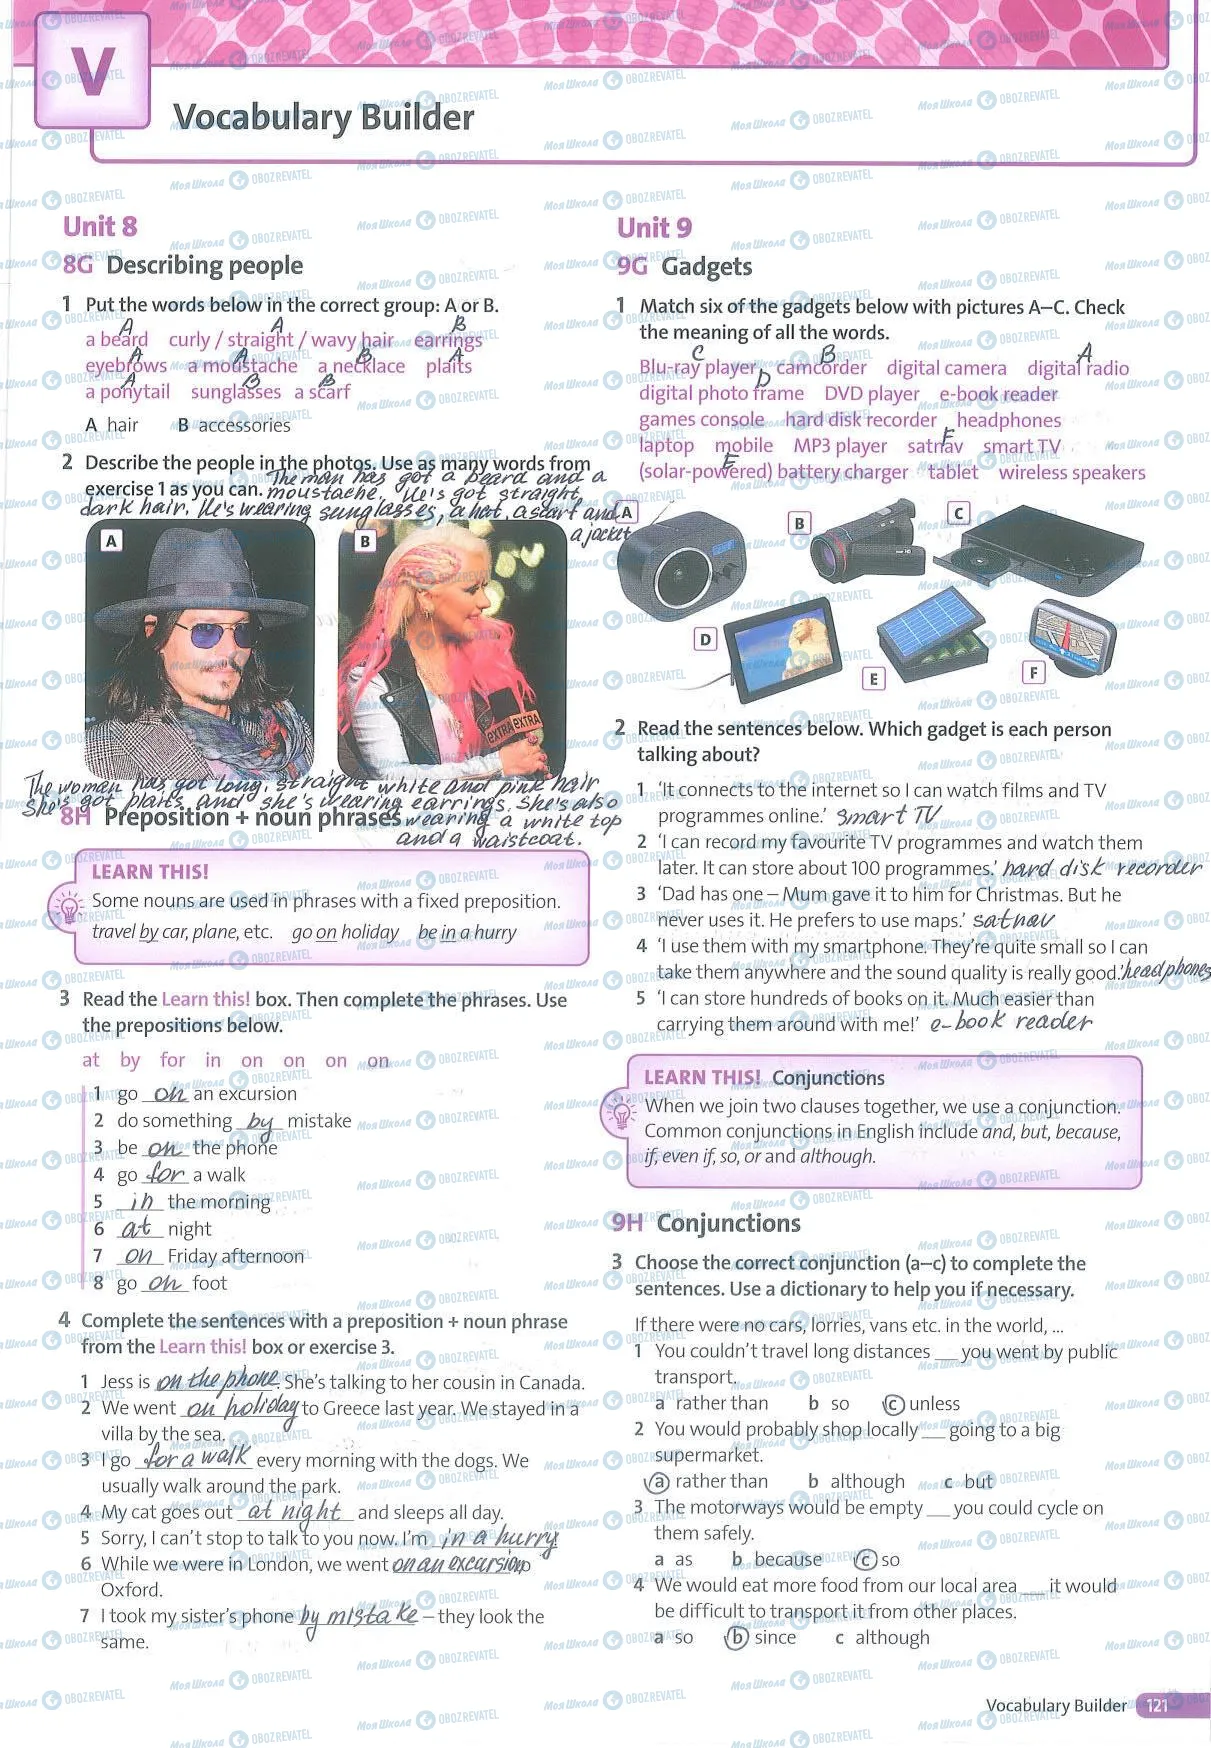 V
Vocabulary Builder
Unit 8
8G Describing people
1 Put the words below in the correct group: A or B.
A A B
a beard curly / straight / wavy hair earrings
A A B A
eyebrows a moustache a necklace plaits
A B B
a ponytail sunglasses a scarf
A hair B accessories
2 Describe the people in the photos. Use as many words from
exercise 1 as you can. The man has got a beard and a
moustache. He's got straight,
dark hair. He's wearing sunglasses, a hat, a scarf and
a jacket
A
B
EXTRA EXTRA
The woman has got long, straight white and pink hair
She's got plaits and she's wearing earrings. She's also
wearing a white top
and a waistcoat.
8H Preposition + noun phrases
LEARN THIS!
Some nouns are used in phrases with a fixed preposition.
travel by car, plane, etc. go on holiday be in a hurry
3 Read the Learn this! box. Then complete the phrases. Use
the prepositions below.
at by for in on on on on
1 go on an excursion
2 do something by mistake
3 be on the phone
4 go for a walk
5 in the morning
6 at night
7 on Friday afternoon
8 go on foot
4 Complete the sentences with a preposition + noun phrase
from the Learn this! box or exercise 3.
1 Jess is on the phone. She's talking to her cousin in Canada.
2 We went on holiday to Greece last year. We stayed in a
villa by the sea.
3 I go for a walk every morning with the dogs. We
usually walk around the park.
4 My cat goes out at night and sleeps all day.
5 Sorry, I can't stop to talk to you now. I'm in a hurry.
6 While we were in London, we went on an excursion to
Oxford.
7 I took my sister's phone by mistake – they look the
same.
Unit 9
9G Gadgets
1 Match six of the gadgets below with pictures A–C. Check
the meaning of all the words.
C B A
Blu-ray player camcorder digital camera digital radio
D
digital photo frame DVD player e-book reader
games console hard disk recorder headphones
F
laptop mobile MP3 player satnav smart TV
E
(solar-powered) battery charger tablet wireless speakers
A
B
C
D
E
F
2 Read the sentences below. Which gadget is each person
talking about?
1 'It connects to the internet so I can watch films and TV
programmes online.' smart TV
2 'I can record my favourite TV programmes and watch them
later. It can store about 100 programmes.' hard disk recorder
3 'Dad has one – Mum gave it to him for Christmas. But he
never uses it. He prefers to use maps.' satnav
4 'I use them with my smartphone. They're quite small so I can
take them anywhere and the sound quality is really good.' headphones
5 'I can store hundreds of books on it. Much easier than
carrying them around with me!' e-book reader
LEARN THIS! Conjunctions
When we join two clauses together, we use a conjunction.
Common conjunctions in English include and, but, because,
if, even if, so, or and although.
9H Conjunctions
3 Choose the correct conjunction (a–c) to complete the
sentences. Use a dictionary to help you if necessary.
If there were no cars, lorries, vans etc. in the world, ...
1 You couldn't travel long distances ___ you went by public
transport.
a rather than b so c unless
2 You would probably shop locally ___ going to a big
supermarket.
a rather than b although c but
3 The motorways would be empty ___ you could cycle on
them safely.
a as b because c so
4 We would eat more food from our local area ___ it would
be difficult to transport it from other places.
a so b since c although
Vocabulary Builder 121
Моя Школа OBOZREVATEL